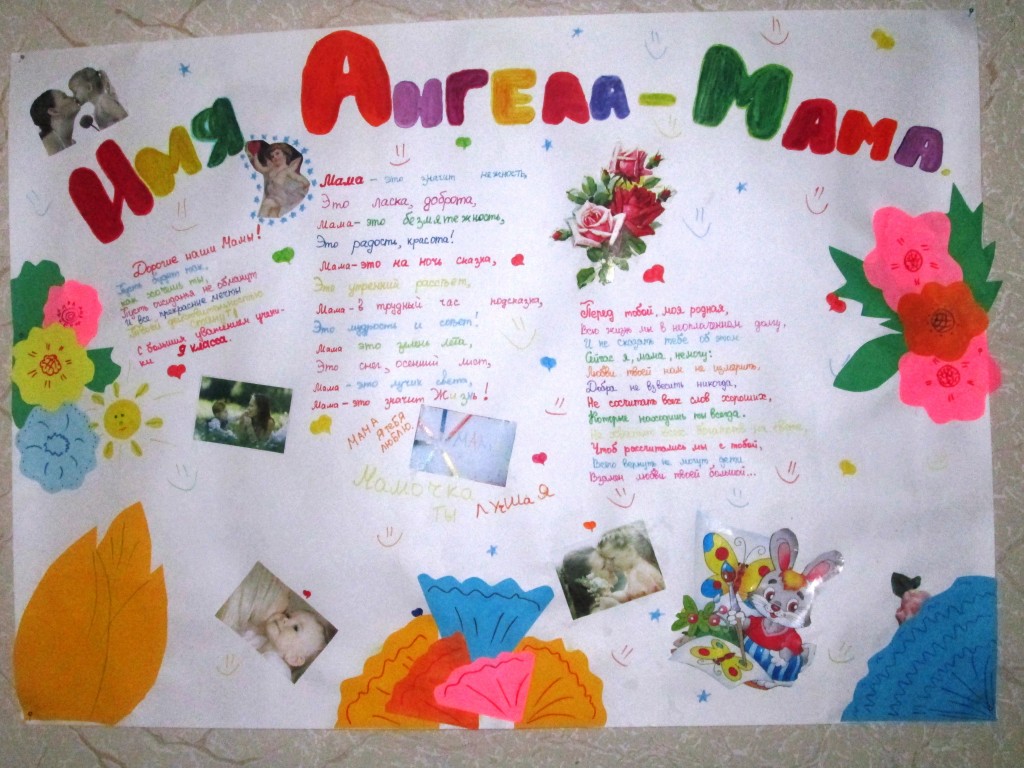 Имя Ангела - Мама.
Дорогие наши Мамы!
Пусть будет так,
как хотите вы,
Пусть ожидания не обманут
И все прекрасные мечты
С большим уважением учени-
ки 9 класса.
Мама - это значит нежность,
Это ласка, доброта,
Мама - это безмятежность,
Это радость, красота!
Мама - это на ночь сказка,
Это утренний рассвет,
Мама - в трудный час подсказка,
Это мудрость и совет!
Мама это зелень лета,
Это снег, осенний лист,
Мама - это лучик света,
Мама - это значит Жизнь!
МАМА
Я ТЕБЯ
ЛЮБЛЮ.
Мамочка
ты лучшая
Перед тобой, моя родная,
Всю жизнь мы в неоплаченном долгу,
И не сказать тебе об этом
Сейчас я, мама, не могу:
Любви твоей нам не измерить,
Добра не взвесить никогда,
Не сосчитать всех слов хороших,
Которые находишь ты всегда.
на свете,
Чтоб рассчитались мы с тобой,
Всего вернуть не могут дети
Взамен любви твоей большой...